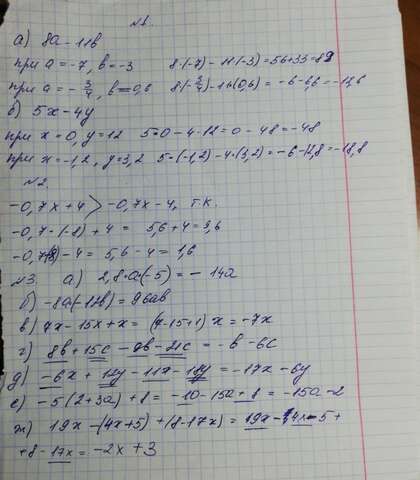 №1.
а) 8a - 11b
при a = -7, b = -3 8·(-7) - 11·(-3) = 56 + 33 = 89
при a = - 3/4, b = 0,6 8(-3/4) - 11·(0,6) = -6 - 6,6 = -12,6
б) 5x - 4y
при x = 0, y = 12 5·0 - 4·12 = 0 - 48 = -48
при x = -1,2, y = 3,2 5·(-1,2) - 4·(3,2) = -6 - 12,8 = -18,8
№2.
-0,7x + 4 > -0,7x - 4, т.к.
-0,7·(-8) + 4 = 5,6 + 4 = 9,6
-0,7(-8) - 4 = 5,6 - 4 = 1,6
№3. а) 2,8·a(-5) = -14a
б) -8a(-12b) = 96ab
в) 7x - 15x + x = (7 - 15 + 1) x = -7x
г) 8b + 15c - 9b - 21c = -b - 6c
д) -6x + 12y - 11x - 18y = -17x - 6y
е) -5(2 + 3a) + 8 = -10 - 15a + 8 = -15a - 2
ж) 19x - (4x + 5) + (8 - 17x) = 19x - 4x - 5 +
+ 8 - 17x = -2x + 3